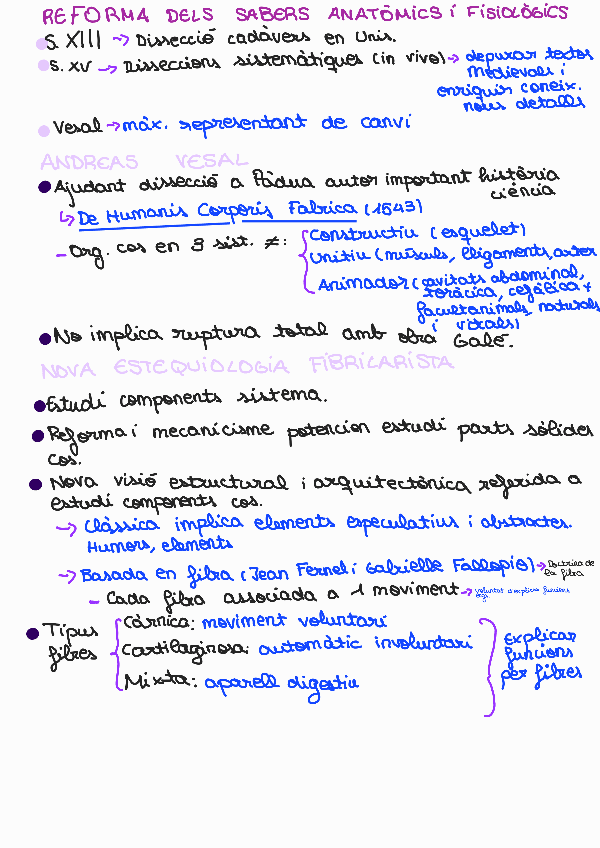 REFORMA DELS SABERS ANATÒMICS i FISIOLÒGICS
S. XIII → Dissecció cadàvers en Unis.
S. XV → Disseccions sistemàtiques (in vivo) → depurar textos
medievals i
enriquir coneix.
nous detalls
Vesal → màx. representant de canvi
ANDREAS VESAL
Ajudant dissecció a Pàdua autor important història
ciència
↳ De Humanis Corporis Fabrica (1543)
- Org. cos en 3 sist. ≠:
Constructiu (esquelet)
Unitiu (músculs, lligaments, arter
Animador (cavitats abdominal,
toràcica, cefàlica +
facultanimals, naturals
i vitals)
No implica ruptura total amb obra Galé.
NOVA ESTEQUIOLOGIA FIBRILARISTA
Estudi components sistema.
Reforma i mecanicisme potencien estudi parts sòlides
cos.
Nova visió estructural i arquitectònica referida a
estudi components cos.
→ Clàssica implica elements especulatius i abstractes.
Humors, elements
→ Basada en fibra (Jean Fernel i Gabrielle Fallopio) → Doctrina de
la fibra
- Cada fibra associada a 1 moviment → voluntat d'explicar funcions
Tipus
fibres
Càrnica: moviment voluntari
Cartilaginosa: automàtic involuntari
Mixta: aparell digestiu
Explicar
funcions
per fibres